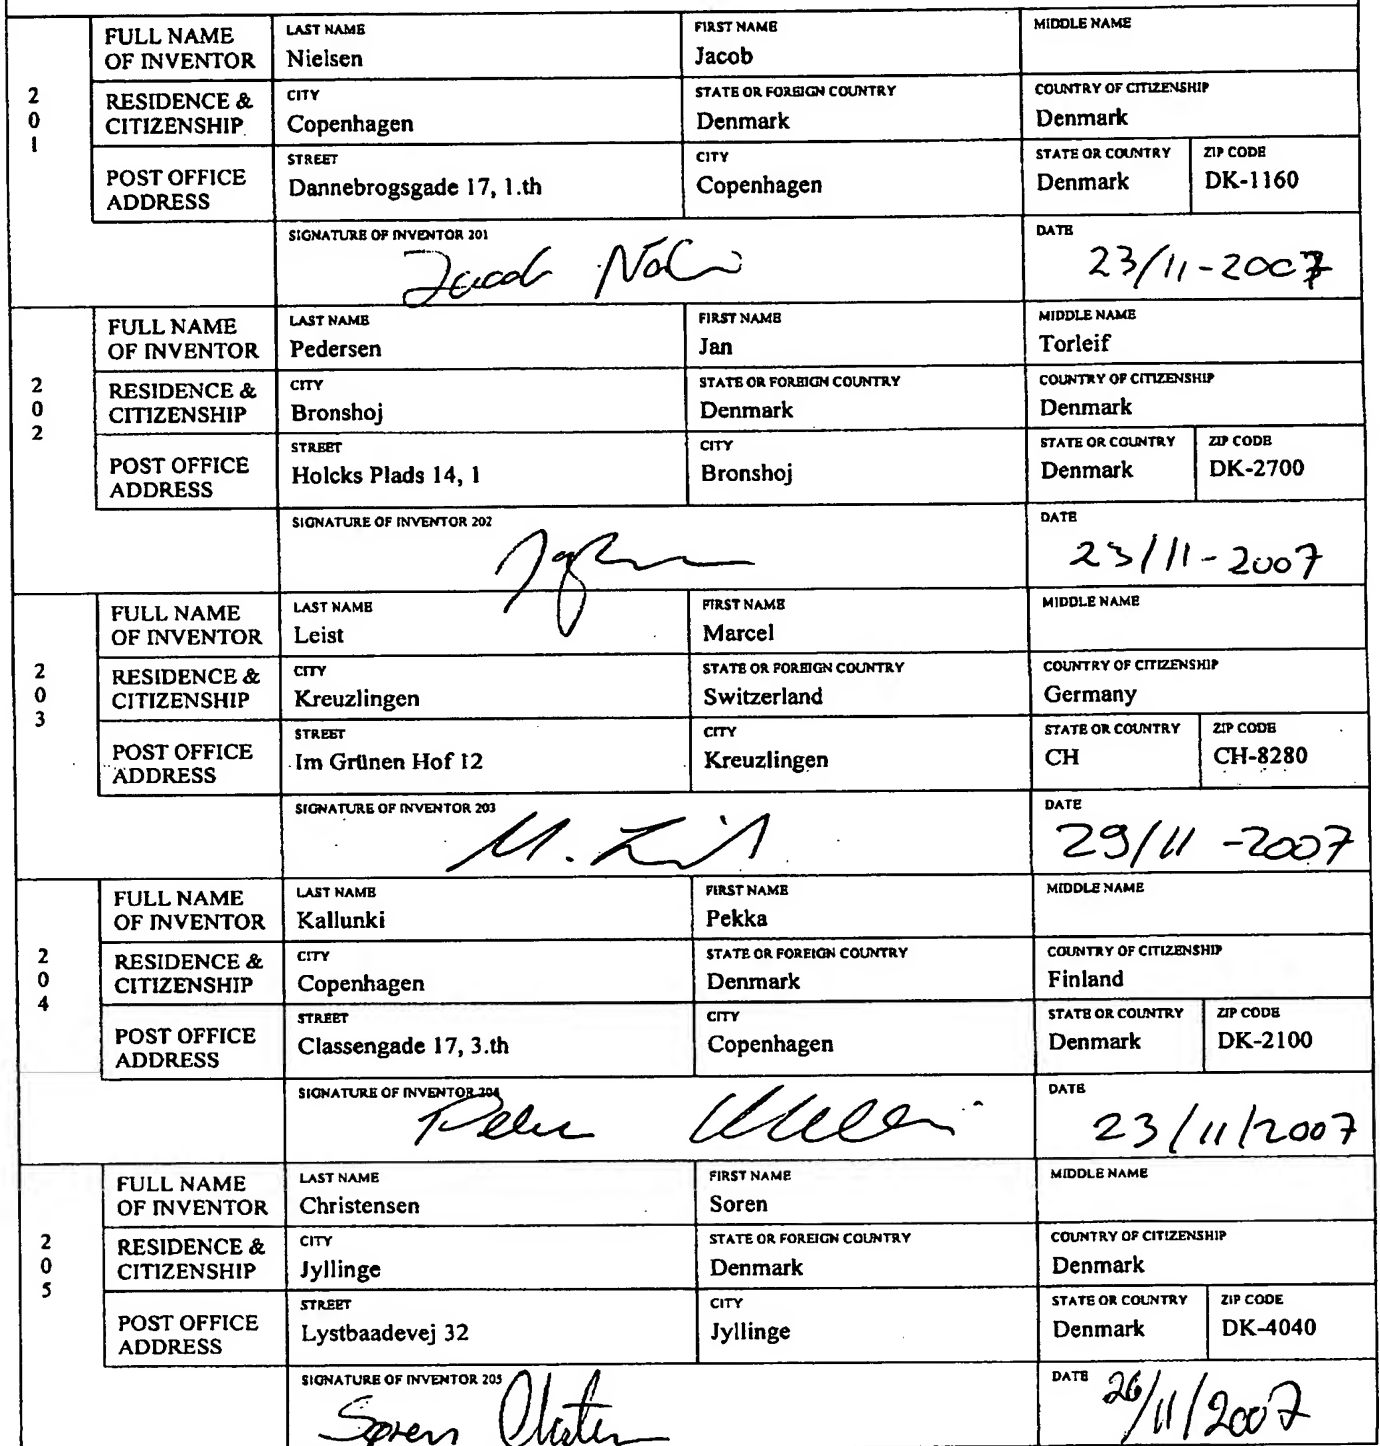 FULL NAME OF INVENTOR LAST NAME Nielsen FIRST NAME Jacob MIDDLE NAME
201 RESIDENCE & CITIZENSHIP CITY Copenhagen STATE OR FOREIGN COUNTRY Denmark COUNTRY OF CITIZENSHIP Denmark
POST OFFICE ADDRESS STREET Dannebrogsgade 17, 1.th CITY Copenhagen STATE OR COUNTRY Denmark ZIP CODE DK-1160
SIGNATURE OF INVENTOR 201 DATE 23/11-2007
FULL NAME OF INVENTOR LAST NAME Pedersen FIRST NAME Jan MIDDLE NAME Torleif
202 RESIDENCE & CITIZENSHIP CITY Bronshoj STATE OR FOREIGN COUNTRY Denmark COUNTRY OF CITIZENSHIP Denmark
POST OFFICE ADDRESS STREET Holcks Plads 14, 1 CITY Bronshoj STATE OR COUNTRY Denmark ZIP CODE DK-2700
SIGNATURE OF INVENTOR 202 DATE 23/11-2007
FULL NAME OF INVENTOR LAST NAME Leist FIRST NAME Marcel MIDDLE NAME
203 RESIDENCE & CITIZENSHIP CITY Kreuzlingen STATE OR FOREIGN COUNTRY Switzerland COUNTRY OF CITIZENSHIP Germany
POST OFFICE ADDRESS STREET Im Grünen Hof 12 CITY Kreuzlingen STATE OR COUNTRY CH ZIP CODE CH-8280
SIGNATURE OF INVENTOR 203 DATE 29/11-2007
FULL NAME OF INVENTOR LAST NAME Kallunki FIRST NAME Pekka MIDDLE NAME
204 RESIDENCE & CITIZENSHIP CITY Copenhagen STATE OR FOREIGN COUNTRY Denmark COUNTRY OF CITIZENSHIP Finland
POST OFFICE ADDRESS STREET Classengade 17, 3.th CITY Copenhagen STATE OR COUNTRY Denmark ZIP CODE DK-2100
SIGNATURE OF INVENTOR 204 DATE 23/11/2007
FULL NAME OF INVENTOR LAST NAME Christensen FIRST NAME Soren MIDDLE NAME
205 RESIDENCE & CITIZENSHIP CITY Jyllinge STATE OR FOREIGN COUNTRY Denmark COUNTRY OF CITIZENSHIP Denmark
POST OFFICE ADDRESS STREET Lystbaadevej 32 CITY Jyllinge STATE OR COUNTRY Denmark ZIP CODE DK-4040
SIGNATURE OF INVENTOR 205 DATE 26/11/2007